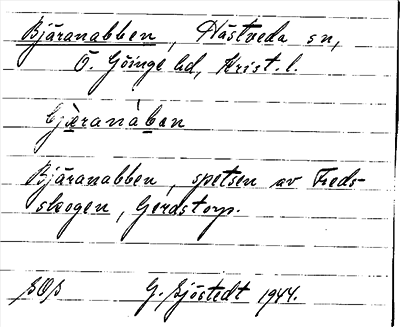 Bjäranabben, Hästveda sn,
Ö. Göinge hd, Krist. l.
Bjäranabben, spetsen av Freds-
skogen, Gerastorp.
G. Sjöstedt 1944.